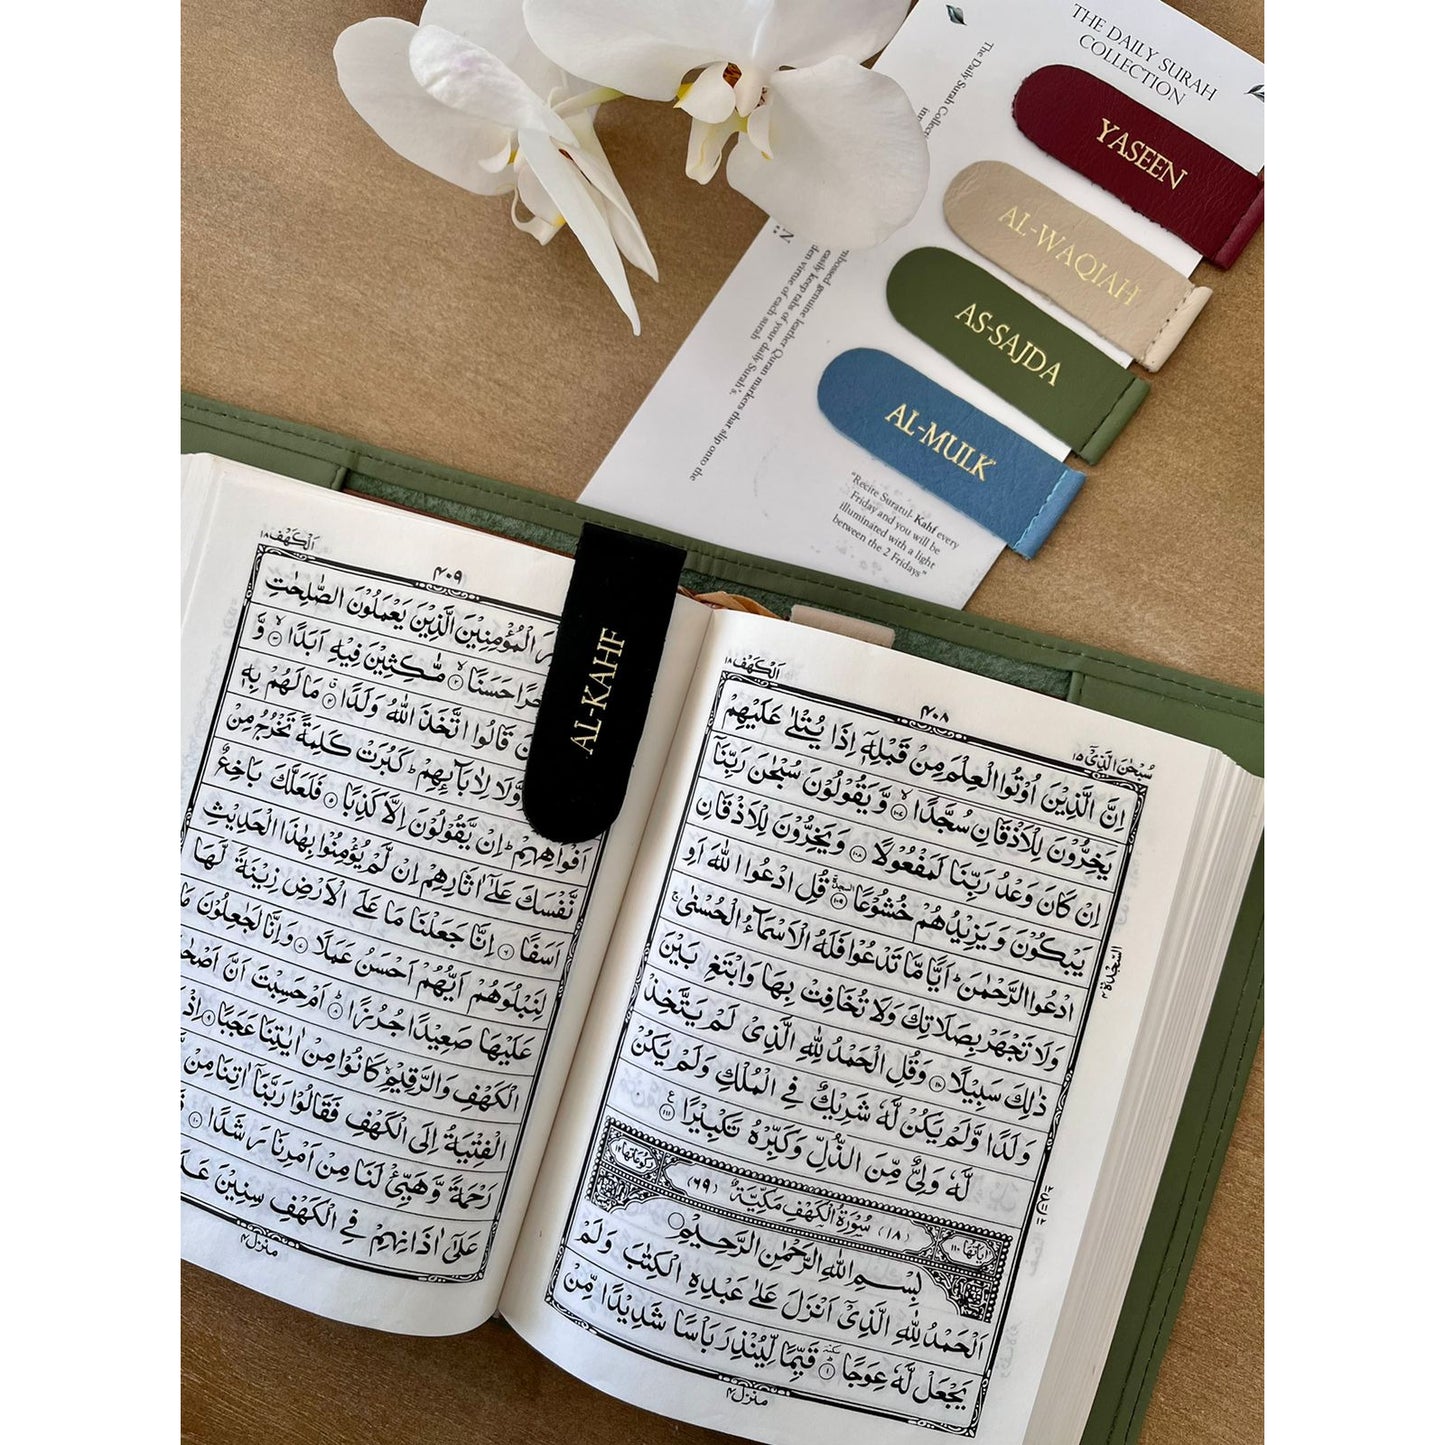 THE DAILY SURAH
COLLECTION
The Daily Surah Collecti
YASEEN
AL-WAQIAH
AS-SAJDA
AL-MULK
mbossed genuine leather Quran markers that slip onto the
easily keep tabs of your daily Surah's,
den virtue of each surah
"Recite Suratul- Kahf every
Friday and you will be
illuminated with a light
between the 2 Fridays"
AL-KAHF
اَلْكَهْف ١٨
۴۰۸
سُبْحٰنَ الَّذِيْٓ ١٥
اِنَّ الَّذِيْنَ اُوْتُوا الْعِلْمَ مِنْ قَبْلِهٖٓ اِذَا يُتْلٰى عَلَيْهِمْ
يَخِرُّوْنَ لِلْاَذْقَانِ سُجَّدًا ۙ‏ ١٠٧ وَّيَقُوْلُوْنَ سُبْحٰنَ رَبِّنَآ
اِنْ كَانَ وَعْدُ رَبِّنَا لَمَفْعُوْلًا ١٠٨ وَيَخِرُّوْنَ لِلْاَذْقَانِ
يَبْكُوْنَ وَيَزِيْدُهُمْ خُشُوْعًا ١٠٩ قُلِ ادْعُوا اللّٰهَ اَوِ
ادْعُوا الرَّحْمٰنَ ؕ اَيًّا مَّا تَدْعُوْا فَلَهُ الْاَسْمَآءُ الْحُسْنٰى ۚ
وَلَا تَجْهَرْ بِصَلَاتِكَ وَلَا تُخَافِتْ بِهَا وَابْتَغِ بَيْنَ
ذٰلِكَ سَبِيْلًا ١١٠ وَقُلِ الْحَمْدُ لِلّٰهِ الَّذِيْ لَمْ يَتَّخِذْ
وَلَدًا وَّلَمْ يَكُنْ لَّهٗ شَرِيْكٌ فِي الْمُلْكِ وَلَمْ يَكُنْ
لَّهٗ وَلِيٌّ مِّنَ الذُّلِّ وَكَبِّرْهُ تَكْبِيْرًا ١١١ ع
اٰيَاتُهَا ١١٠ (١٨) سُوْرَةُ الْكَهْفِ مَكِّيَّةٌ (٦٩) رُكُوْعَاتُهَا ١٢
بِسْمِ اللّٰهِ الرَّحْمٰنِ الرَّحِيْمِ
اَلْحَمْدُ لِلّٰهِ الَّذِيْٓ اَنْزَلَ عَلٰى عَبْدِهِ الْكِتٰبَ وَلَمْ
يَجْعَلْ لَّهٗ عِوَجًا ١ قَيِّمًا لِّيُنْذِرَ بَاْسًا شَدِيْدًا مِّنْ
منزل ۴
السجدة ۴
اَلْكَهْف ١٨
۴۰۹
الْمُؤْمِنِيْنَ الَّذِيْنَ يَعْمَلُوْنَ الصّٰلِحٰتِ
حَسَنًا ٢ مَّاكِثِيْنَ فِيْهِ اَبَدًا ٣ وَّ
قَالُوا اتَّخَذَ اللّٰهُ وَلَدًا ٤ مَا لَهُمْ بِهٖ
وَّلَا لِاٰبَآئِهِمْ ؕ كَبُرَتْ كَلِمَةً تَخْرُجُ مِنْ
اَفْوَاهِهِمْ ؕ اِنْ يَّقُوْلُوْنَ اِلَّا كَذِبًا ٥ فَلَعَلَّكَ بَاخِعٌ
نَّفْسَكَ عَلٰٓى اٰثَارِهِمْ اِنْ لَّمْ يُؤْمِنُوْا بِهٰذَا الْحَدِيْثِ
اَسَفًا ٦ اِنَّا جَعَلْنَا مَا عَلَى الْاَرْضِ زِيْنَةً لَّهَا
لِنَبْلُوَهُمْ اَيُّهُمْ اَحْسَنُ عَمَلًا ٧ وَاِنَّا لَجٰعِلُوْنَ مَا
عَلَيْهَا صَعِيْدًا جُرُزًا ٨ اَمْ حَسِبْتَ اَنَّ
الْكَهْفِ وَالرَّقِيْمِ كَانُوْا مِنْ اٰيٰتِنَا عَجَبًا ٩
الْفِتْيَةُ اِلَى الْكَهْفِ فَقَالُوْا رَبَّنَآ اٰتِنَا مِنْ
رَحْمَةً وَّهَيِّئْ لَنَا مِنْ اَمْرِنَا رَشَدًا ١٠
عَلٰٓى اٰذَانِهِمْ فِي الْكَهْفِ سِنِيْنَ
منزل ۴